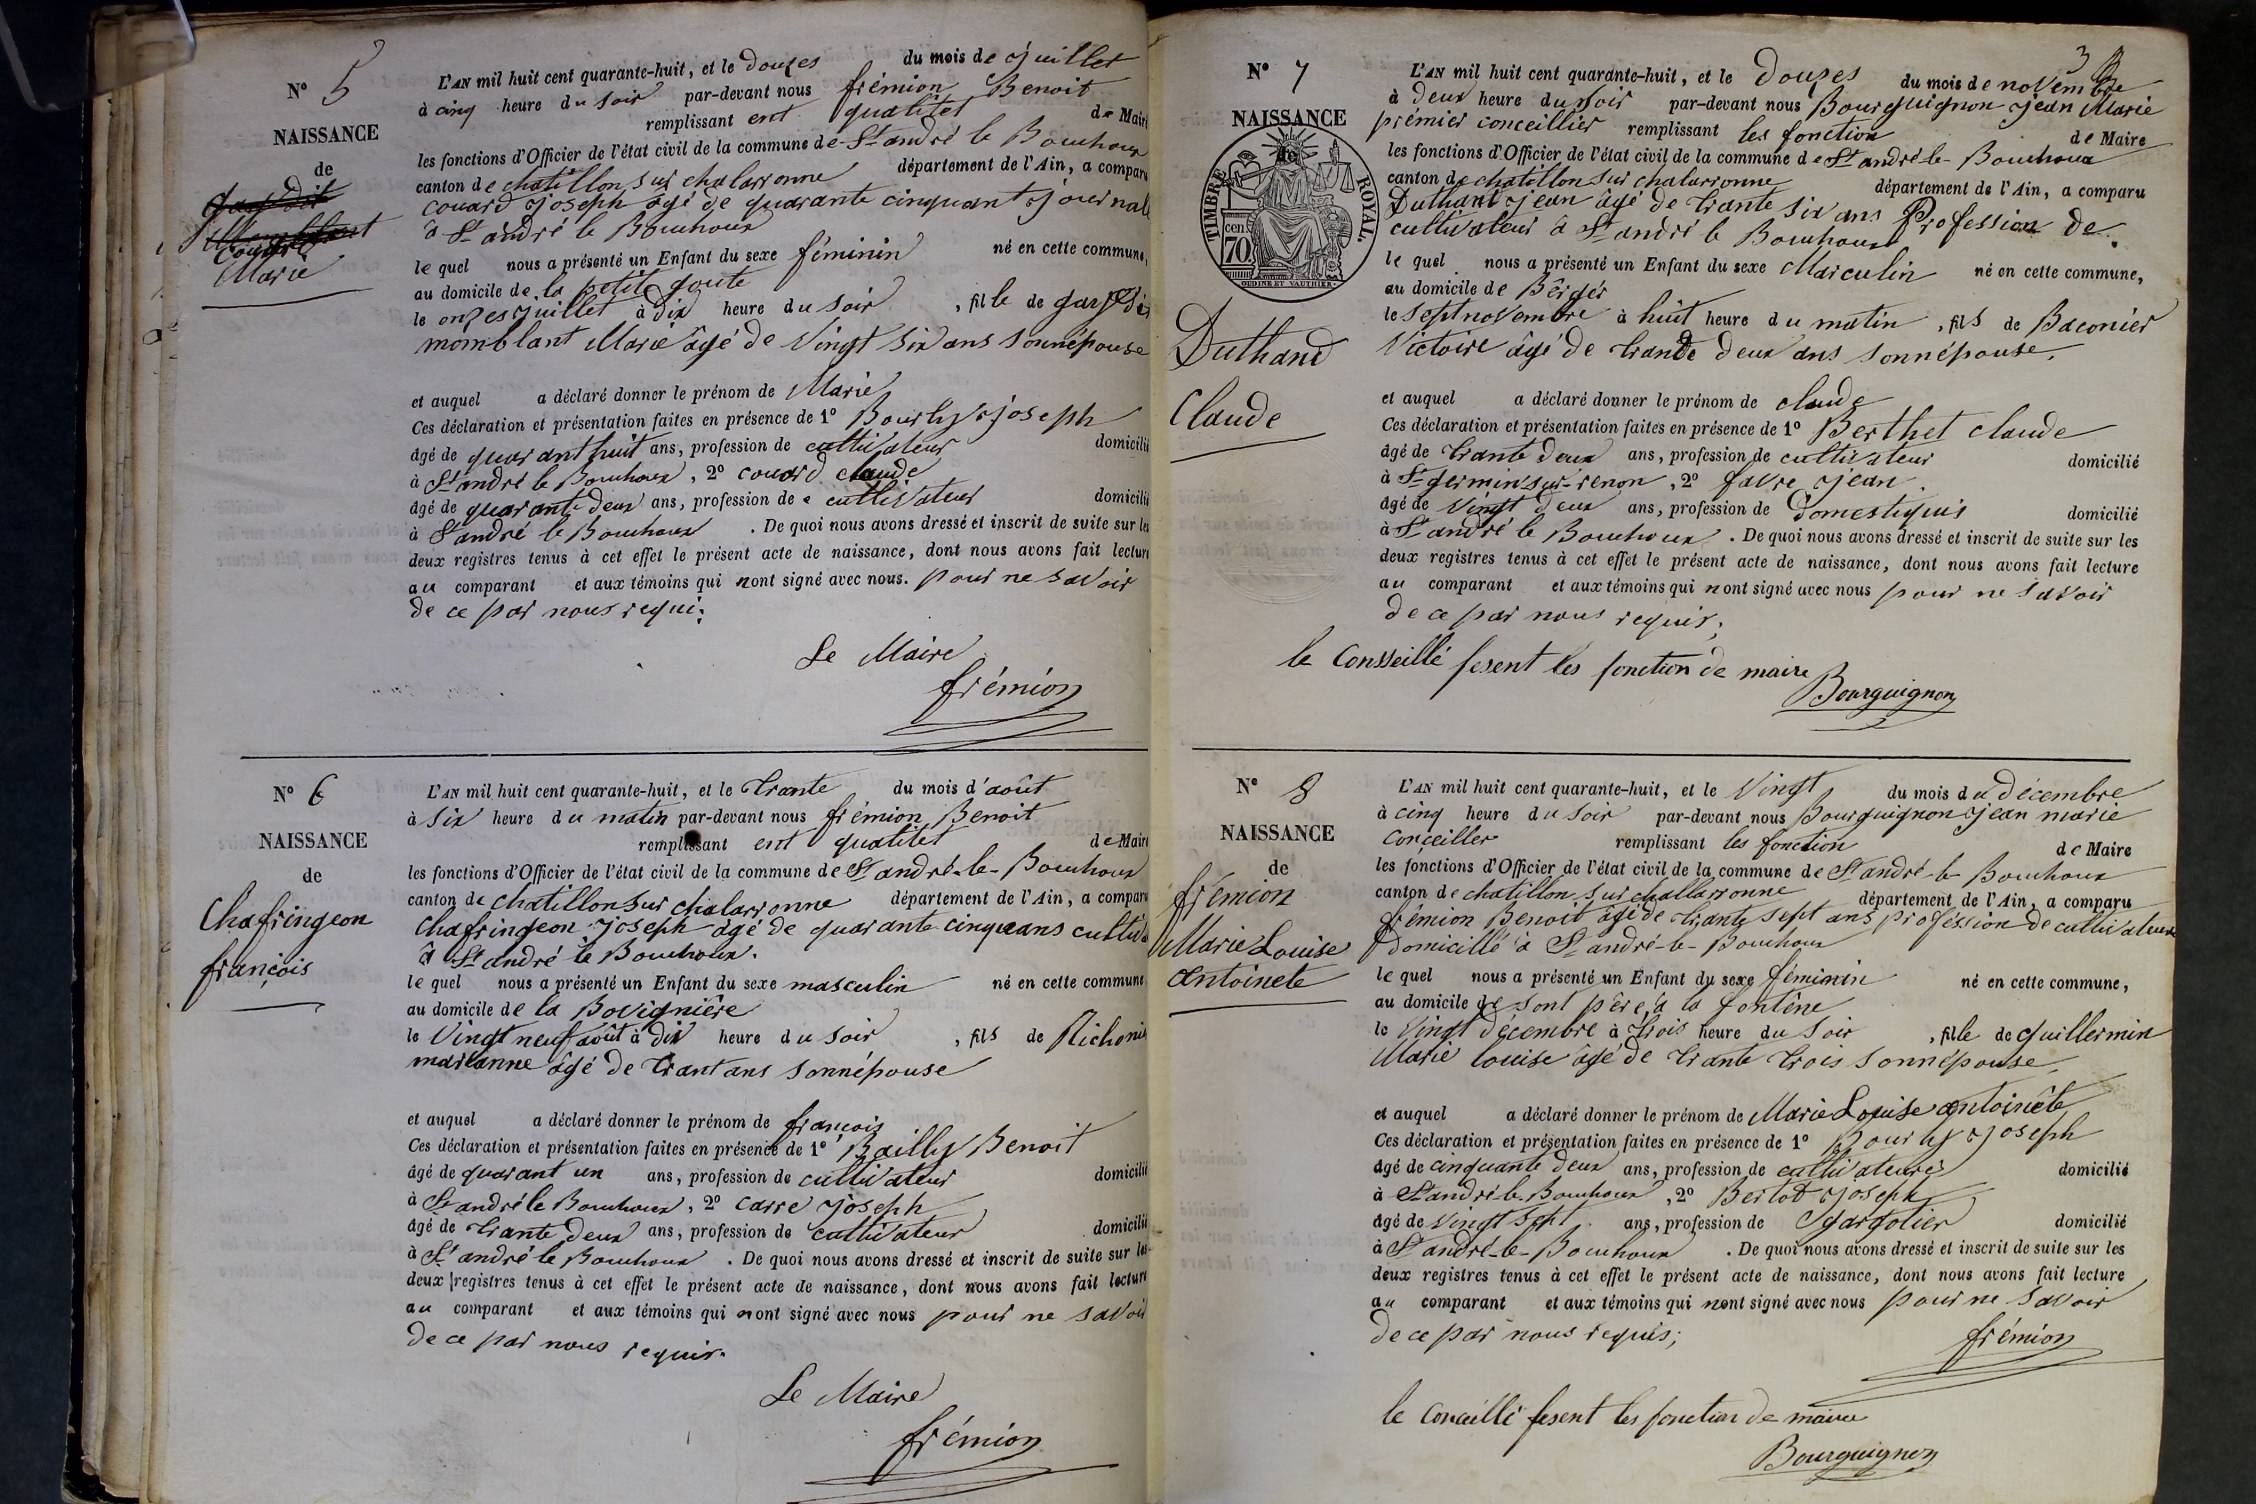 N° 5
NAISSANCE
de
Couard
Marie
L'AN mil huit cent quarante-huit, et le douzes du mois de juillet
à cinq heure du soir par-devant nous frémion Benoit
remplissant ent qualitet de Maire
les fonctions d'Officier de l'état civil de la commune de St andré le Bouchoux
canton de chatillon sur chalaronne département de l'Ain, a comparu
couard joseph agé de quarante cinquant journal
à St andré le Bouchoux
le quel nous a présenté un Enfant du sexe féminin né en cette commune,
au domicile de la petite goute
le onzes juillet à dix heure du soir , fille de
momblant Marie âgé de vingt six ans sonnépouse
et auquel a déclaré donner le prénom de Marie
Ces déclaration et présentation faites en présence de 1° Bourly joseph
âgé de quarant huit ans, profession de cultivateur domicilié
à St andré le Bouchoux , 2° couard claude
âgé de quarante deux ans, profession de cultivateur domicilié
à St andré le Bouchoux . De quoi nous avons dressé et inscrit de suite sur les
deux registres tenus à cet effet le présent acte de naissance, dont nous avons fait lecture
au comparant et aux témoins qui nont signé avec nous. pour ne savoir
de ce par nous requi;
Le Maire
frémion
N° 6
NAISSANCE
de
Chafringeon
françois
L'AN mil huit cent quarante-huit, et le trante du mois d'août
à six heure du matin par-devant nous frémion Benoit
remplissant ent qualitet de Maire
les fonctions d'Officier de l'état civil de la commune de St andré-le-Bouchoux
canton de chatillon sur chalaronne département de l'Ain, a comparu
Chafringeon joseph agé de quarante cinque ans cultiva
à St andré le Bouchoux.
le quel nous a présenté un Enfant du sexe masculin né en cette commune
au domicile de la Bovignière
le vingt neuf août à dix heure du soir , fils de Richonis
marianne âgé de trant ans sonnépouse
et auquel a déclaré donner le prénom de françois
Ces déclaration et présentation faites en présence de 1° Bailly Benoit
âgé de quarant un ans, profession de cultivateur domicilié
à St andré le Bouchoux , 2° carre joseph
âgé de trante deux ans, profession de cultivateur domicilié
à St andré le Bouchoux . De quoi nous avons dressé et inscrit de suite sur les
deux registres tenus à cet effet le présent acte de naissance, dont nous avons fait lecture
au comparant et aux témoins qui nont signé avec nous pour ne savoir
de ce par nous requir.
Le Maire
frémion
3
N° 7
NAISSANCE
de
TIMBRE ROYAL.
70 cen
OUDINE ET VAUTHIER
Duthand
Claude
L'AN mil huit cent quarante-huit, et le douzes du mois de novembre
à deux heure du soir par-devant nous Bourguignon jean Marie
prémier conceillier remplissant les fonction de Maire
les fonctions d'Officier de l'état civil de la commune de St andré-le-Bouchoux
canton de chatillon sur chalaronne département de l'Ain, a comparu
Duthant jean âgé de trante six ans Profession de
cultivateur à St andré le Bouchoux
le quel nous a présenté un Enfant du sexe Marculin né en cette commune,
au domicile de Bérgér
le sept novembre à huit heure du matin , fils de Baconier
Victoire âgé de trande deux ans sonnépouse.
et auquel a déclaré donner le prénom de claude
Ces déclaration et présentation faites en présence de 1° Berthet claude
âgé de trante deux ans, profession de cultivateur domicilié
à St germin sur-renon , 2° favre jean
âgé de vingt deux ans, profession de Domestiquis domicilié
à St andré le Bouchoux . De quoi nous avons dressé et inscrit de suite sur les
deux registres tenus à cet effet le présent acte de naissance, dont nous avons fait lecture
au comparant et aux témoins qui nont signé avec nous pour ne savoir
de ce par nous requir;
le Consseillé fesent les fonction de maire
Bourguignon
N° 8
NAISSANCE
de
frémion
Marie Louise
antoinete
L'AN mil huit cent quarante-huit, et le vingt du mois du décembre
à cinq heure du soir par-devant nous Bourguignon jean marie
conceiller remplissant les fonction de Maire
les fonctions d'Officier de l'état civil de la commune de St andré-le-Bouchoux
canton de chatillon sur challaronne département de l'Ain, a comparu
frémion Benoit âgé de trante sept ans proféssion de cultivateur
domicillé à St andré-le-Bouchoux
le quel nous a présenté un Enfant du sexe féminin né en cette commune,
au domicile de sont père, à la fontène
le vingt décembre à trois heure du soir , fille de guillermin
Marie louise âgé de trante trois sonnépouse.
et auquel a déclaré donner le prénom de Marie Louise antoinète
Ces déclaration et présentation faites en présence de 1° Bourly joseph
âgé de cinquante deux ans, profession de cultivateur domicilié
à St andré-le-Bouchoux , 2° Bertod joseph
âgé de vingt sept ans, profession de domicilié
à St andré-le-Bouchoux . De quoi nous avons dressé et inscrit de suite sur les
deux registres tenus à cet effet le présent acte de naissance, dont nous avons fait lecture
au comparant et aux témoins qui nont signé avec nous pour ne savoir
de ce par nous requis;
frémion
le Conceillé fesent les fonction de maire
Bourguignon